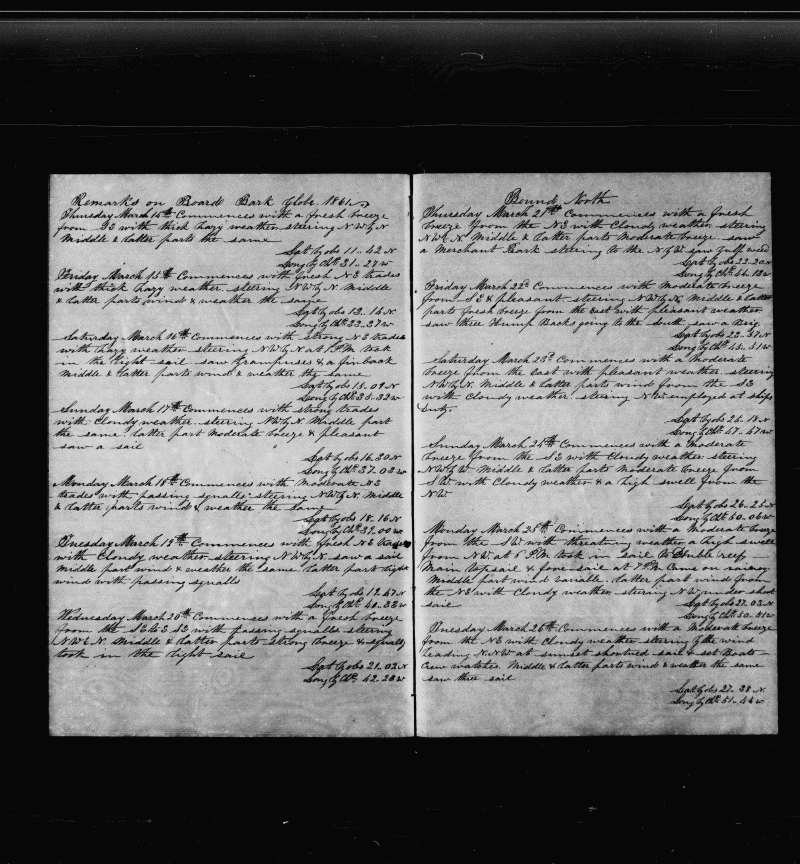 Remarks on Board Bark Globe 1861
Thursday March 14th Commences with a fresh breeze
from SE with thick hazy weather steering NW by N
Middle & latter parts the same
Lat by obs 11-42 N
Long by Chr 31-27 W
Friday March 15th Commences with fresh NE trades
with thick hazy weather steering NW by N Middle
& latter parts wind & weather the same
Lat by obs 13-14 N
Long by Chr 33-27 W
Saturday March 16th Commences with strong NE trades
with hazy weather steering NW by N at 1 PM took
in the light sail saw Grampuses & a finback
Middle & latter parts wind & weather the same
Lat by obs 15-09 N
Long by Chr 35-32 W
Sunday March 17th Commences with strong trades
with cloudy weather steering NW by N Middle part
the same latter part Moderate breeze & pleasant
saw a sail
Lat by obs 16-30 N
Long by Chr 37-03 W
Monday March 18th Commences with Moderate NE
trades with passing squalls steering NW by N Middle
& latter parts wind & weather the same
Lat by obs 18-16 N
Long by Chr 39-00 W
Tuesday March 19th Commences with fresh NE trades
with Cloudy weather steering NW by N saw a sail
Middle part wind & weather the same latter part light
wind with passing squalls
Lat by obs 19-47 N
Long by Chr 40-35 W
Wednesday March 20th Commences with a fresh breeze
from the SE & E SE with passing squalls steering
NW by N Middle & latter parts strong breeze & squally
took in the light sail
Lat by obs 21-02 N
Long by Chr 42-28 W
Bound North
Thursday March 21st Commences with a fresh
breeze from the NE with Cloudy weather steering
NW by N Middle & latter parts Moderate breeze saw
a Merchant Bark steering to the N by W saw gulf weed
Lat by obs 22-20 N
Long by Chr 44-12 W
Friday March 22d Commences with Moderate breeze
from SE & pleasant steering NW by N Middle & latter
parts fresh breeze from the East with pleasant weather
saw three Hump Backs going to the South saw a Brig
Lat by obs 23-57 N
Long by Chr 45-51 W
Saturday March 23d Commences with a Moderate
breeze from the East with pleasant weather steering
NW by N Middle & latter parts wind from the SE
with cloudy weather steering NW employed at ships
duty
Lat by obs 25-18 N
Long by Chr 47-47 W
Sunday March 24th Commences with a Moderate
breeze from the SE with Cloudy weather steering
NW by W Middle & latter parts Moderate breeze from
SW with Cloudy weather & a high swell from the
NW
Lat by obs 26-25 N
Long by Chr 50-06 W
Monday March 25th Commences with a Moderate breeze
from the SW with threatning weather a high swell
from NW at 5 PM took in sail to Duble reef
Main top sail & fore sail at 7 PM Came on rainey
Middle part wind variable latter part wind from
the NE with Cloudy weather steering NW under short
sail
Lat by obs 27-03 N
Long by Chr 50-51 W
Tuesday March 26th Commences with a Moderate breeze
from the NE with Cloudy weather steering by the wind
heading NNW at sunset shortned sail & set Boats
Crew watches Middle & latter parts wind & weather the same
saw three sail
Lat by obs 27-28 N
Long by Chr 51-44 W